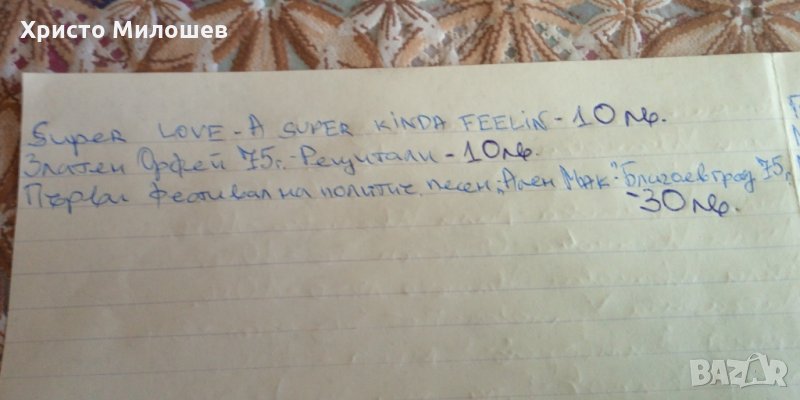 Христо Милошев
Super LOVE - A SUPER KINDA FEELIN - 10 лв.
Златен Орфей 75г. - Рецитали - 10 лв.
Първи фестивал на политич. песен „Ален Мак“ Благоевград 75г.
- 30 лв.
BAZAR